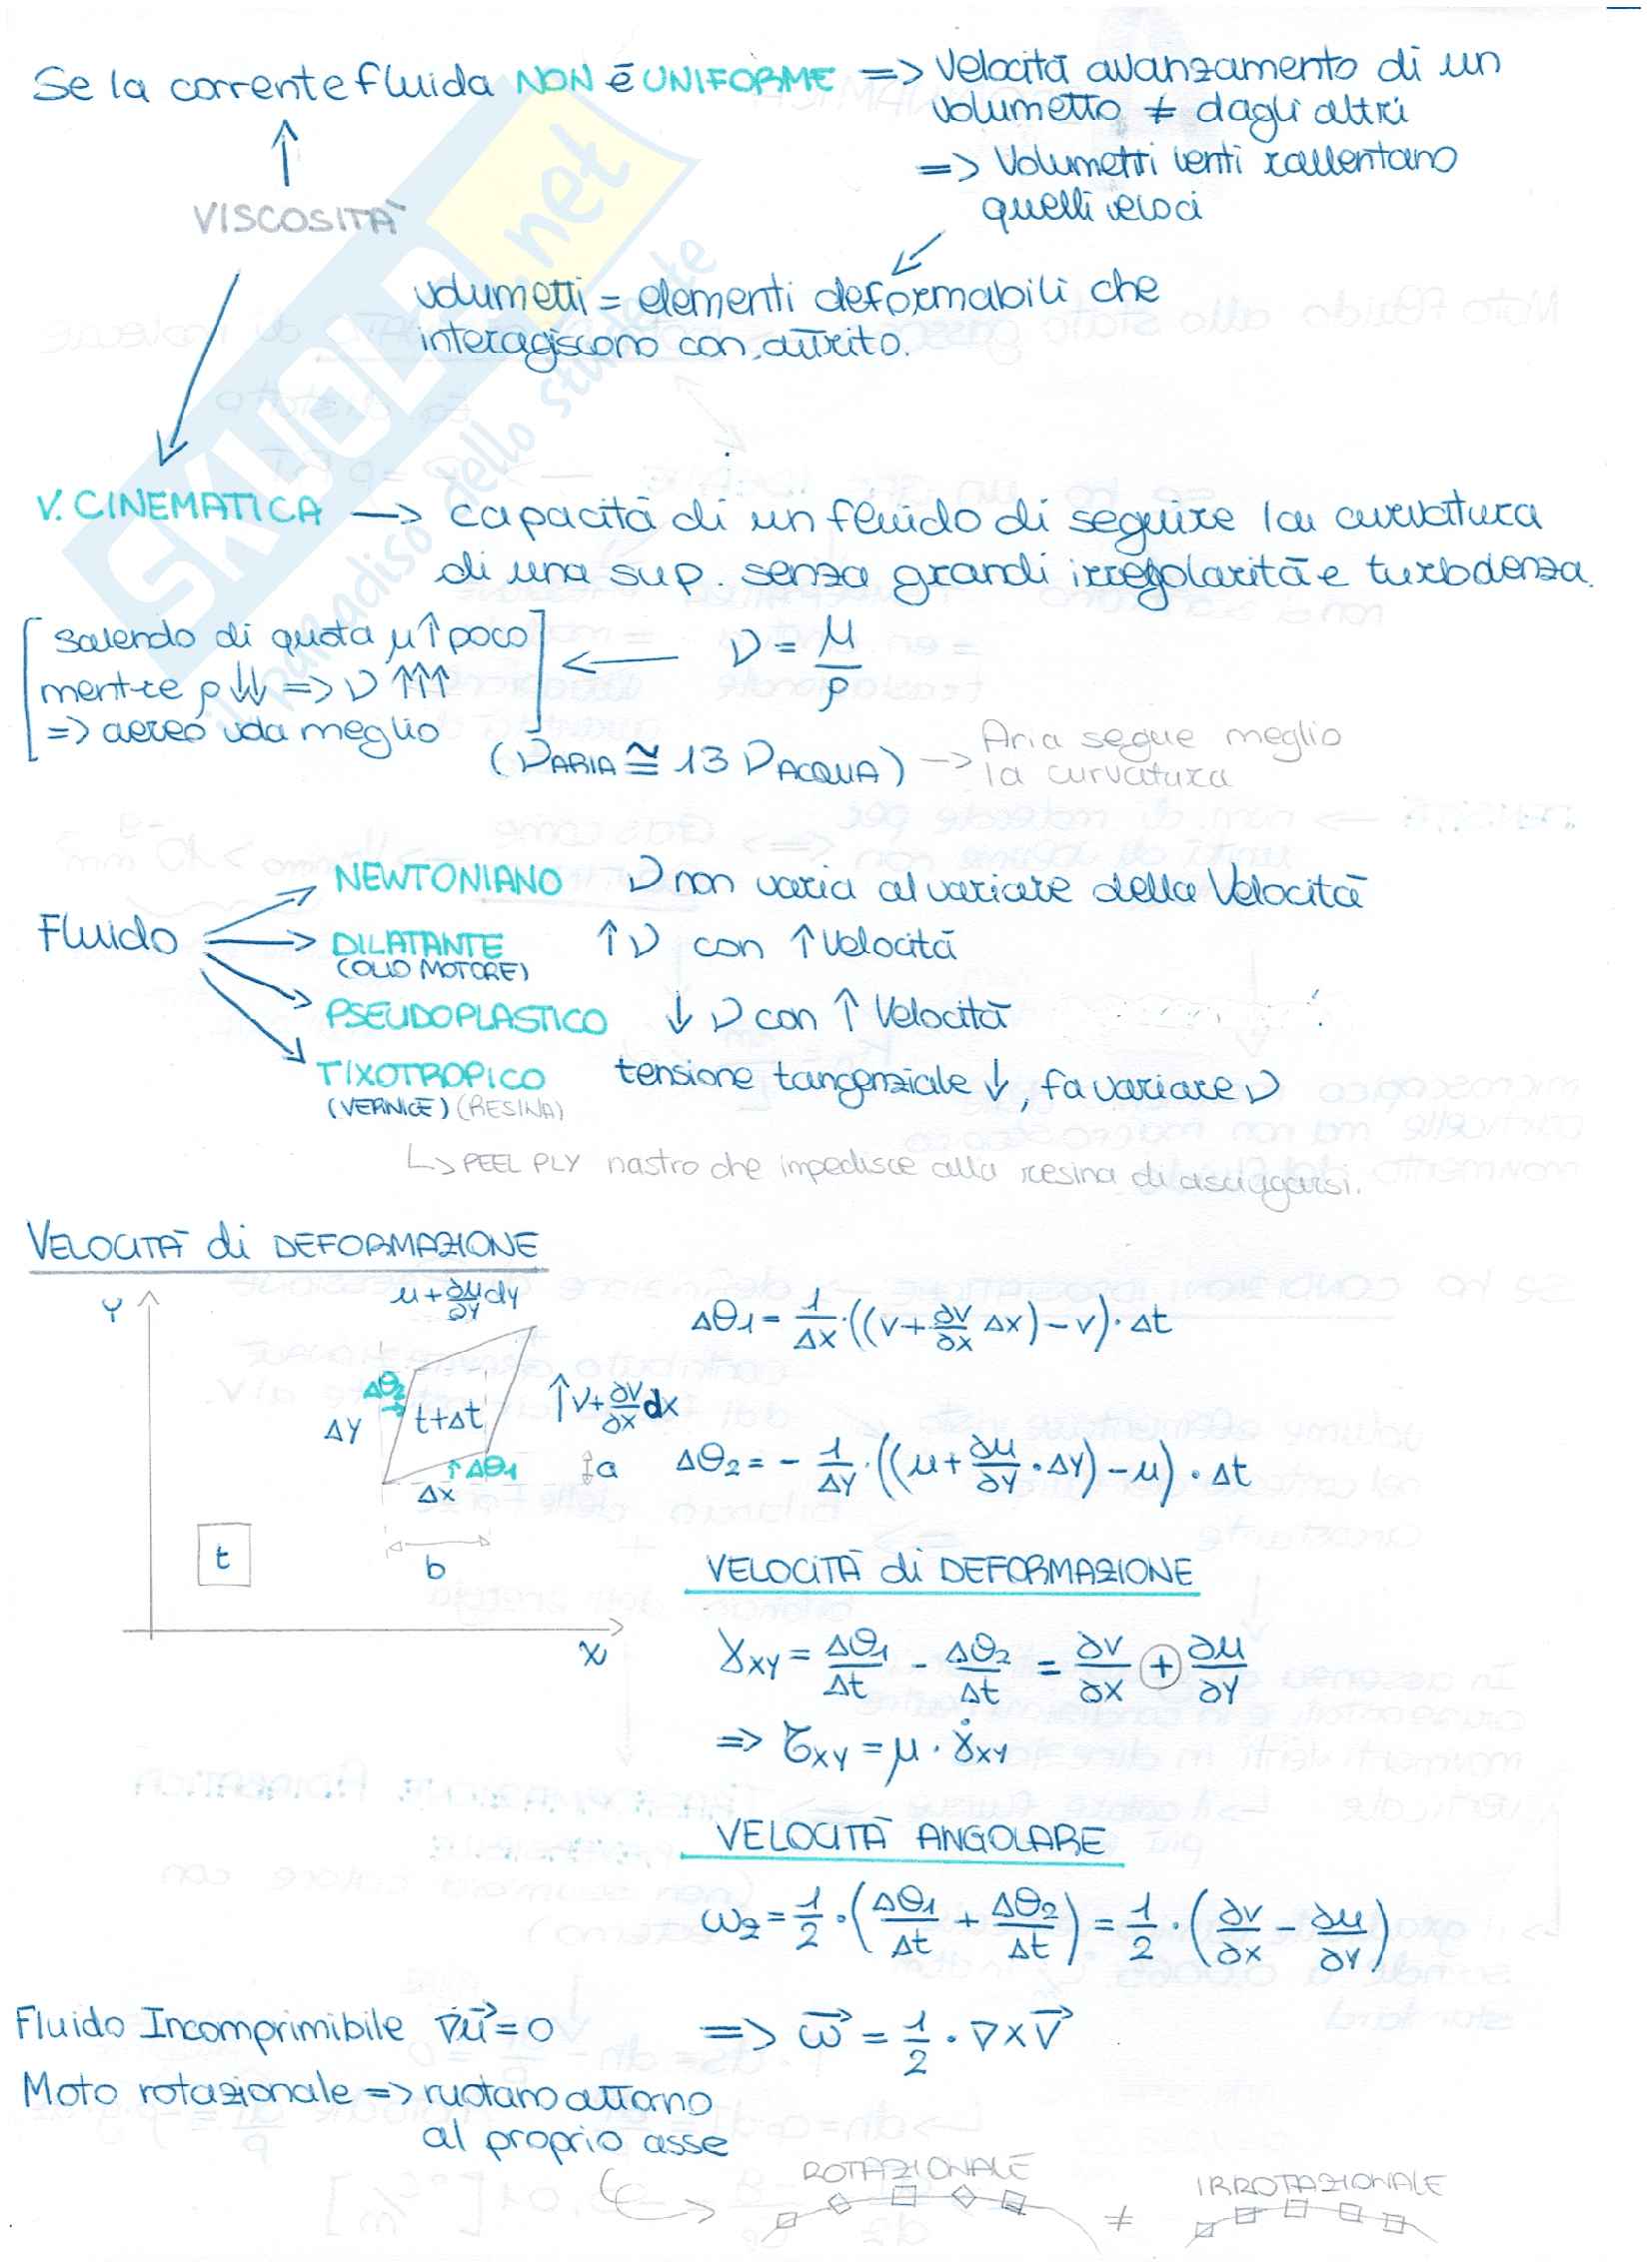 Se la corrente fluida NON è UNIFORME => Velocità avanzamento di un
volumetto ≠ dagli altri
=> Volumetti lenti rallentano
quelli veloci
↑
VISCOSITÀ
volumetti = elementi deformabili che
interagiscono con attrito.
SKUOLA.net
il paradiso dello studente
V. CINEMATICA —> capacità di un fluido di seguire la curvatura
di una sup. senza grandi irregolarità e turbolenza.
[salendo di quota μ↑ poco
mentre ρ↓↓ => ν↑↑↑
=> aereo vola meglio] <— ν = μ/ρ
(ν ARIA ≅ 13 ν ACQUA) —> Aria segue meglio
la curvatura
Fluido
NEWTONIANO ν non varia al variare della Velocità
DILATANTE ↑ν con ↑Velocità
(OLIO MOTORE)
PSEUDOPLASTICO ↓ν con ↑Velocità
TIXOTROPICO tensione tangenziale ↓, fa variare ν
(VERNICE) (RESINA)
↳ PEEL PLY nastro che impedisce alla resina di asciugarsi.
VELOCITÀ di DEFORMAZIONE
Y
u+∂u/∂y dy
Δθ1 = 1/Δx·((v+∂v/∂x Δx)-v)·Δt
Δθ2
ΔY
t+Δt
↑v+∂v/∂x dx
↑Δθ1
Δx
a
Δθ2 = -1/ΔY·((u+∂u/∂Y·ΔY)-u)·Δt
t
b
X
VELOCITÀ di DEFORMAZIONE
γxy = Δθ1/Δt - Δθ2/Δt = ∂v/∂x + ∂u/∂y
=> τxy = μ·γ̇xy
VELOCITÀ ANGOLARE
ωz = 1/2·(Δθ1/Δt + Δθ2/Δt) = 1/2·(∂v/∂x - ∂u/∂y)
Fluido Incomprimibile ∇u⃗=0 => ω⃗ = 1/2·∇×V⃗
Moto rotazionale => ruotano attorno
al proprio asse
ROTAZIONALE ≠ IRROTAZIONALE